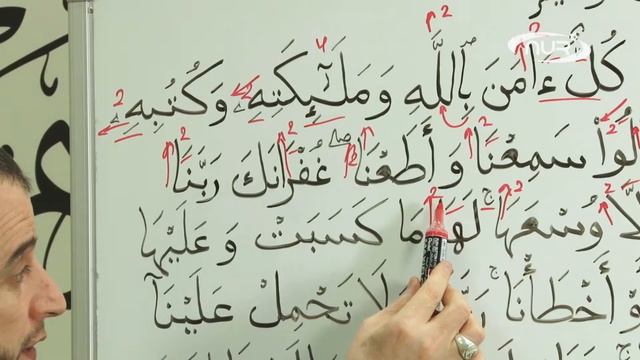 NUR
كُلٌّ ءَامَنَ بِاللَّهِ وَمَلَـٰٓئِكَتِهِۦ وَكُتُبِهِۦ
لُوا۟ سَمِعْنَا وَأَطَعْنَا ۖ غُفْرَانَكَ رَبَّنَا
لَّا وُسْعَهَا ۚ لَهَا مَا كَسَبَتْ وَعَلَيْهَا
وْ أَخْطَأْنَا ۚ لَا تَحْمِلْ عَلَيْنَآ